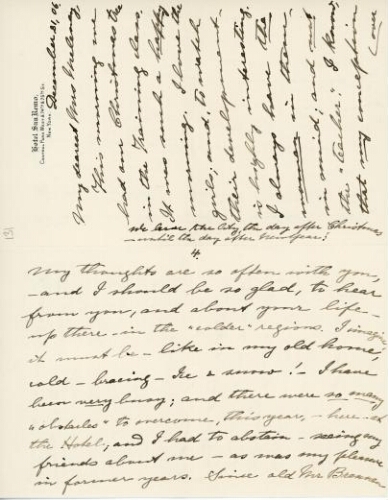 Hotel San Remo,
Central Park West & 74th & 75th Sts.
New York.
December 21, 06
My dearest Mrs.
This morning we
had our Christmas Tree
in the Training Class.
It was such a happy
morning. I love the
girls, and, to watch
their development
is highly interesting.
I always have the
in them
in mind, and not
the "teacher". I know,
that my conception
over
We leave the City, the day after Christmas
– until the day after New-year!
151
4.
My thoughts are so often with you,
– and I should be so glad, to hear
from you, and about your life –
up there – in the "colder" regions. I imagine
it must be – like in my old home,
cold – bracing – Ice & snow! – I have
been very busy; and there were so many
"obstacles" to overcome, this year, – here – at
the Hotel, and I had to abstain – seeing my
friends about me – as was my pleasure
in former years. Since old Mr